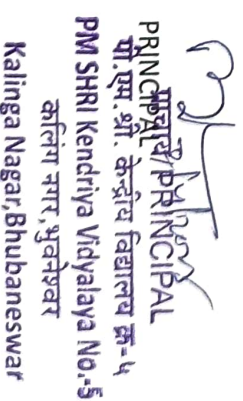 PRINCIPAL
प्राचार्य/PRINCIPAL
पी.एम. श्री. केन्द्रीय विद्यालय क्र-५
PM SHRI Kendriya Vidyalaya No.-5
कलिंग नगर,भुवनेश्वर
Kalinga Nagar,Bhubaneswar